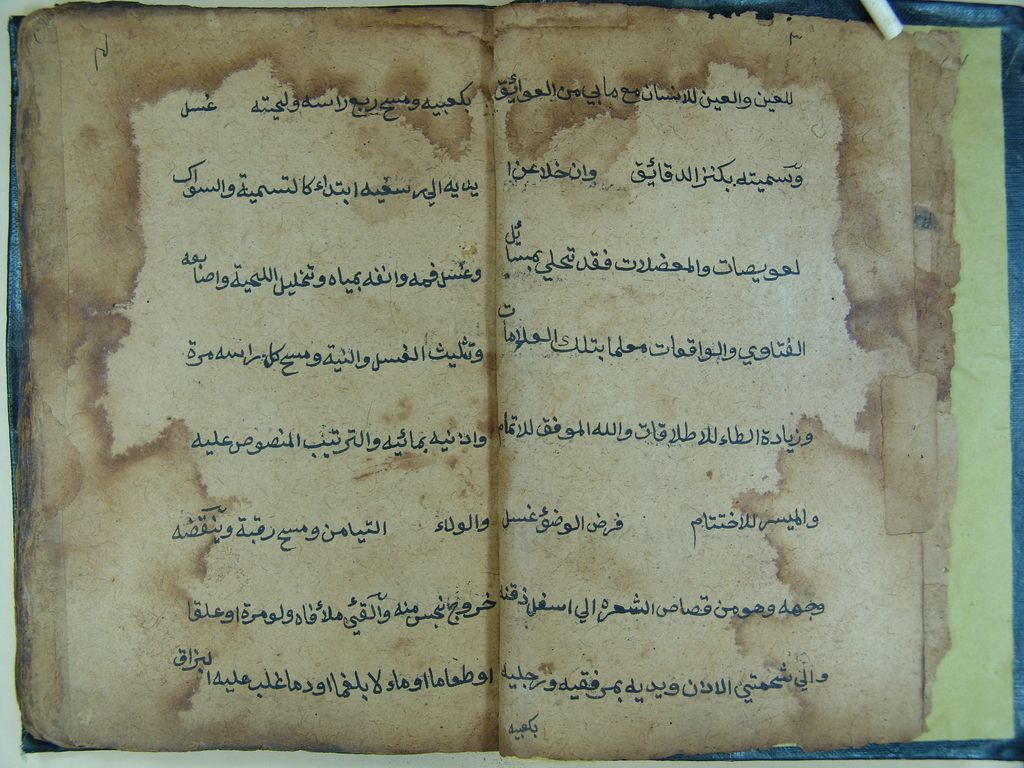 ٣
للعين والعين للانسان مع مابي من العوائق
وسميته بكنز الدقائق وان خلا عن ا
لعويصات والمعضلات فقد تحلي بمسائل
الفتاوي والواقعات معلما بتلك العلامات
وزيادة الطاء للاطلاقات والله الموفق للاتمام
والميسر للاختتام فرض الوضؤ غسل
وجهه وهو من قصاص الشعره الي اسفل ذقنه
والي شحمتي الاذن ويديه بمرفقيه ورجليه
بكعبيه
بكعبيه ومسح ربع راسه ولحيته غسل
يديه الي رسغيه ابتداء كالتسمية والسواك
وغسل فمه وانفه بمياه وتخليل اللحية واصابعه
وتثليث الغسل والنية ومسح كل راسه مرة
واذنيه بمائيه والترتيب المنصوص عليه
والولاء التيامن ومسح رقبة وينقضه
خروج نجس منه والقئي ملأ فاه ولو مرة او علقا
او طعاما او ماء لا بلغما او دما غلب عليه البزاق